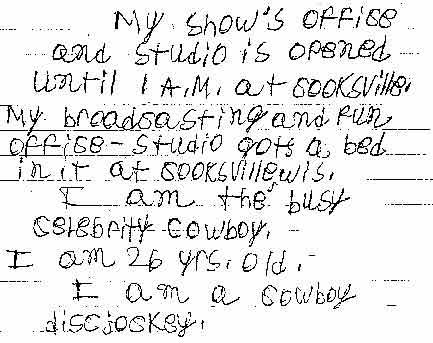 My show's office
and studio is opened
until 1 A.M. at cooksville.
My broadcasting and fun
office-studio gots a bed
in it at cooksville wis.
I am the busy
celebrity cowboy.
I am 26 yrs. old.
I am a cowboy
discjockey.